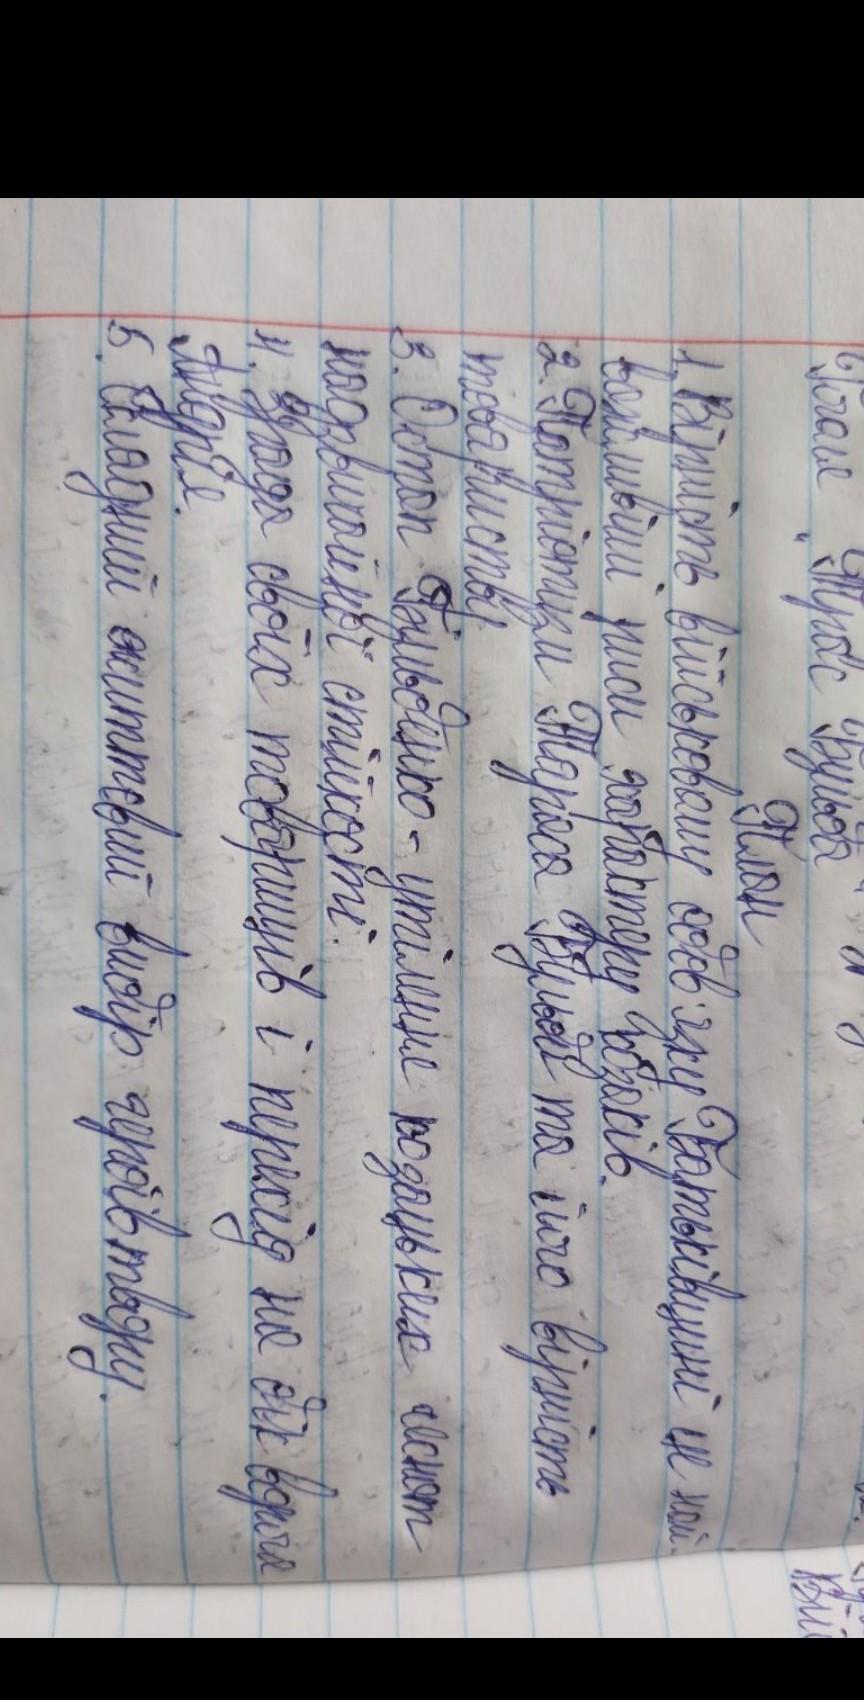 Гоголя "Тарас Бульба
План
1. Вірність військовому обов'язку Батьківщині це най-
важливіші риси характеру козаків.
2. Патріотизм Тараса Бульби та його вірність
товариству
3. Остап Бульбенко - утілення козацьких чеснот
надзвичайної стійкості.
4. Зрада своїх товаришів і перехід на бік ворога
Андрія.
5. Складний життєвий вибір героїв твору.